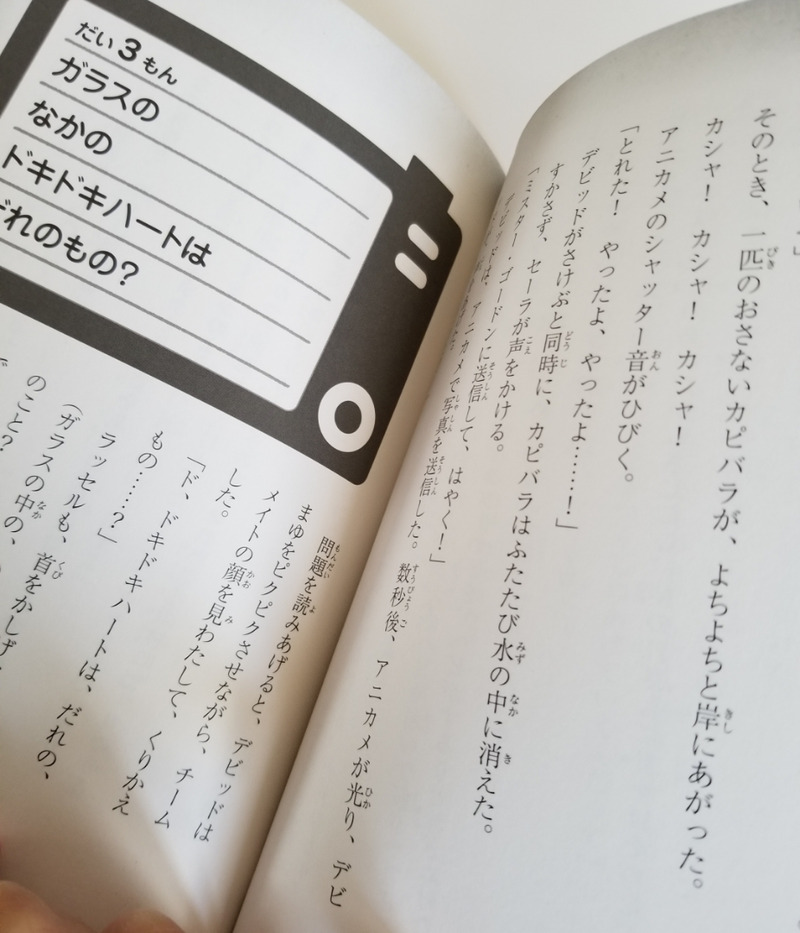 そのとき、一匹のおさないカピバラが、よちよちと岸にあがった。
カシャ！　カシャ！　カシャ！
アニカメのシャッター音がひびく。
「とれた！　やったよ、やったよ……！」
デビッドがさけぶと同時に、カピバラはふたたび水の中に消えた。
すかさず、セーラが声をかける。
「ミスター・ゴードンに送信して、はやく！」
デビッドは、アニカメで写真を送信した。数秒後、アニカメが光り、デビ
だい3もん
ガラスの
なかの
ドキドキハートは
れのもの？
問題を読みあげると、デビッドは
まゆをピクピクさせながら、チーム
メイトの顔を見わたして、くりかえ
した。
「ド、ドキドキハートは、だれの、
もの……？」
ラッセルも、首をかしげ
（ガラスの中の、
のこと？